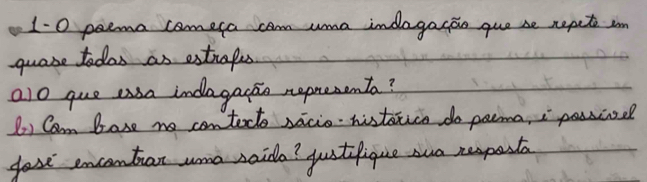 1-O poema começa com uma indagação que se repete em
quase todas as estrofes.
a) O que essa indagação representa?
b) Com base no contexto sócio-histórico do poema, é possível
José encontrar uma saída? Justifique sua resposta.